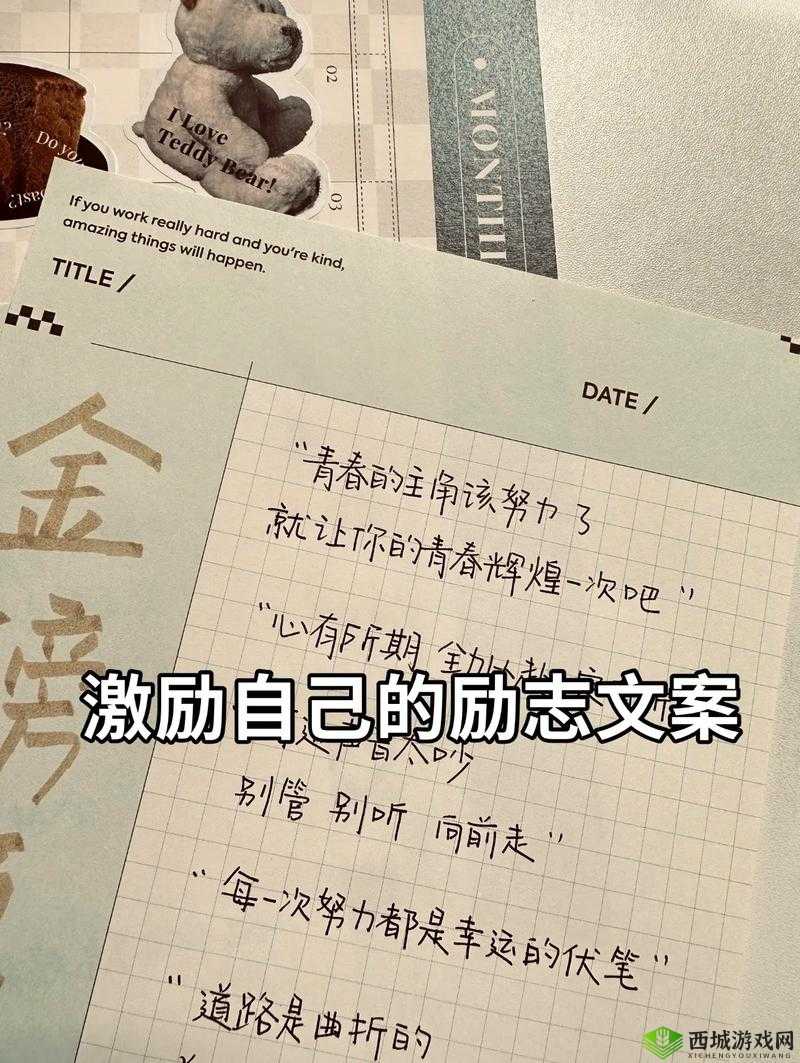 02
I Love
Teddy Bear!
Do you
03
MONTHL
If you work really hard and you're kind,
amazing things will happen.
TITLE /
DATE /
金
榜
"青春的主角该努力了
就让你的青春辉煌一次吧"
"心有所期
激励自己的励志文案
声音太吵
别管 别听 向前走"
"每一次努力都是幸运的伏笔"
"道路是曲折的
西城游戏网
XICHENGYOUXIWANG